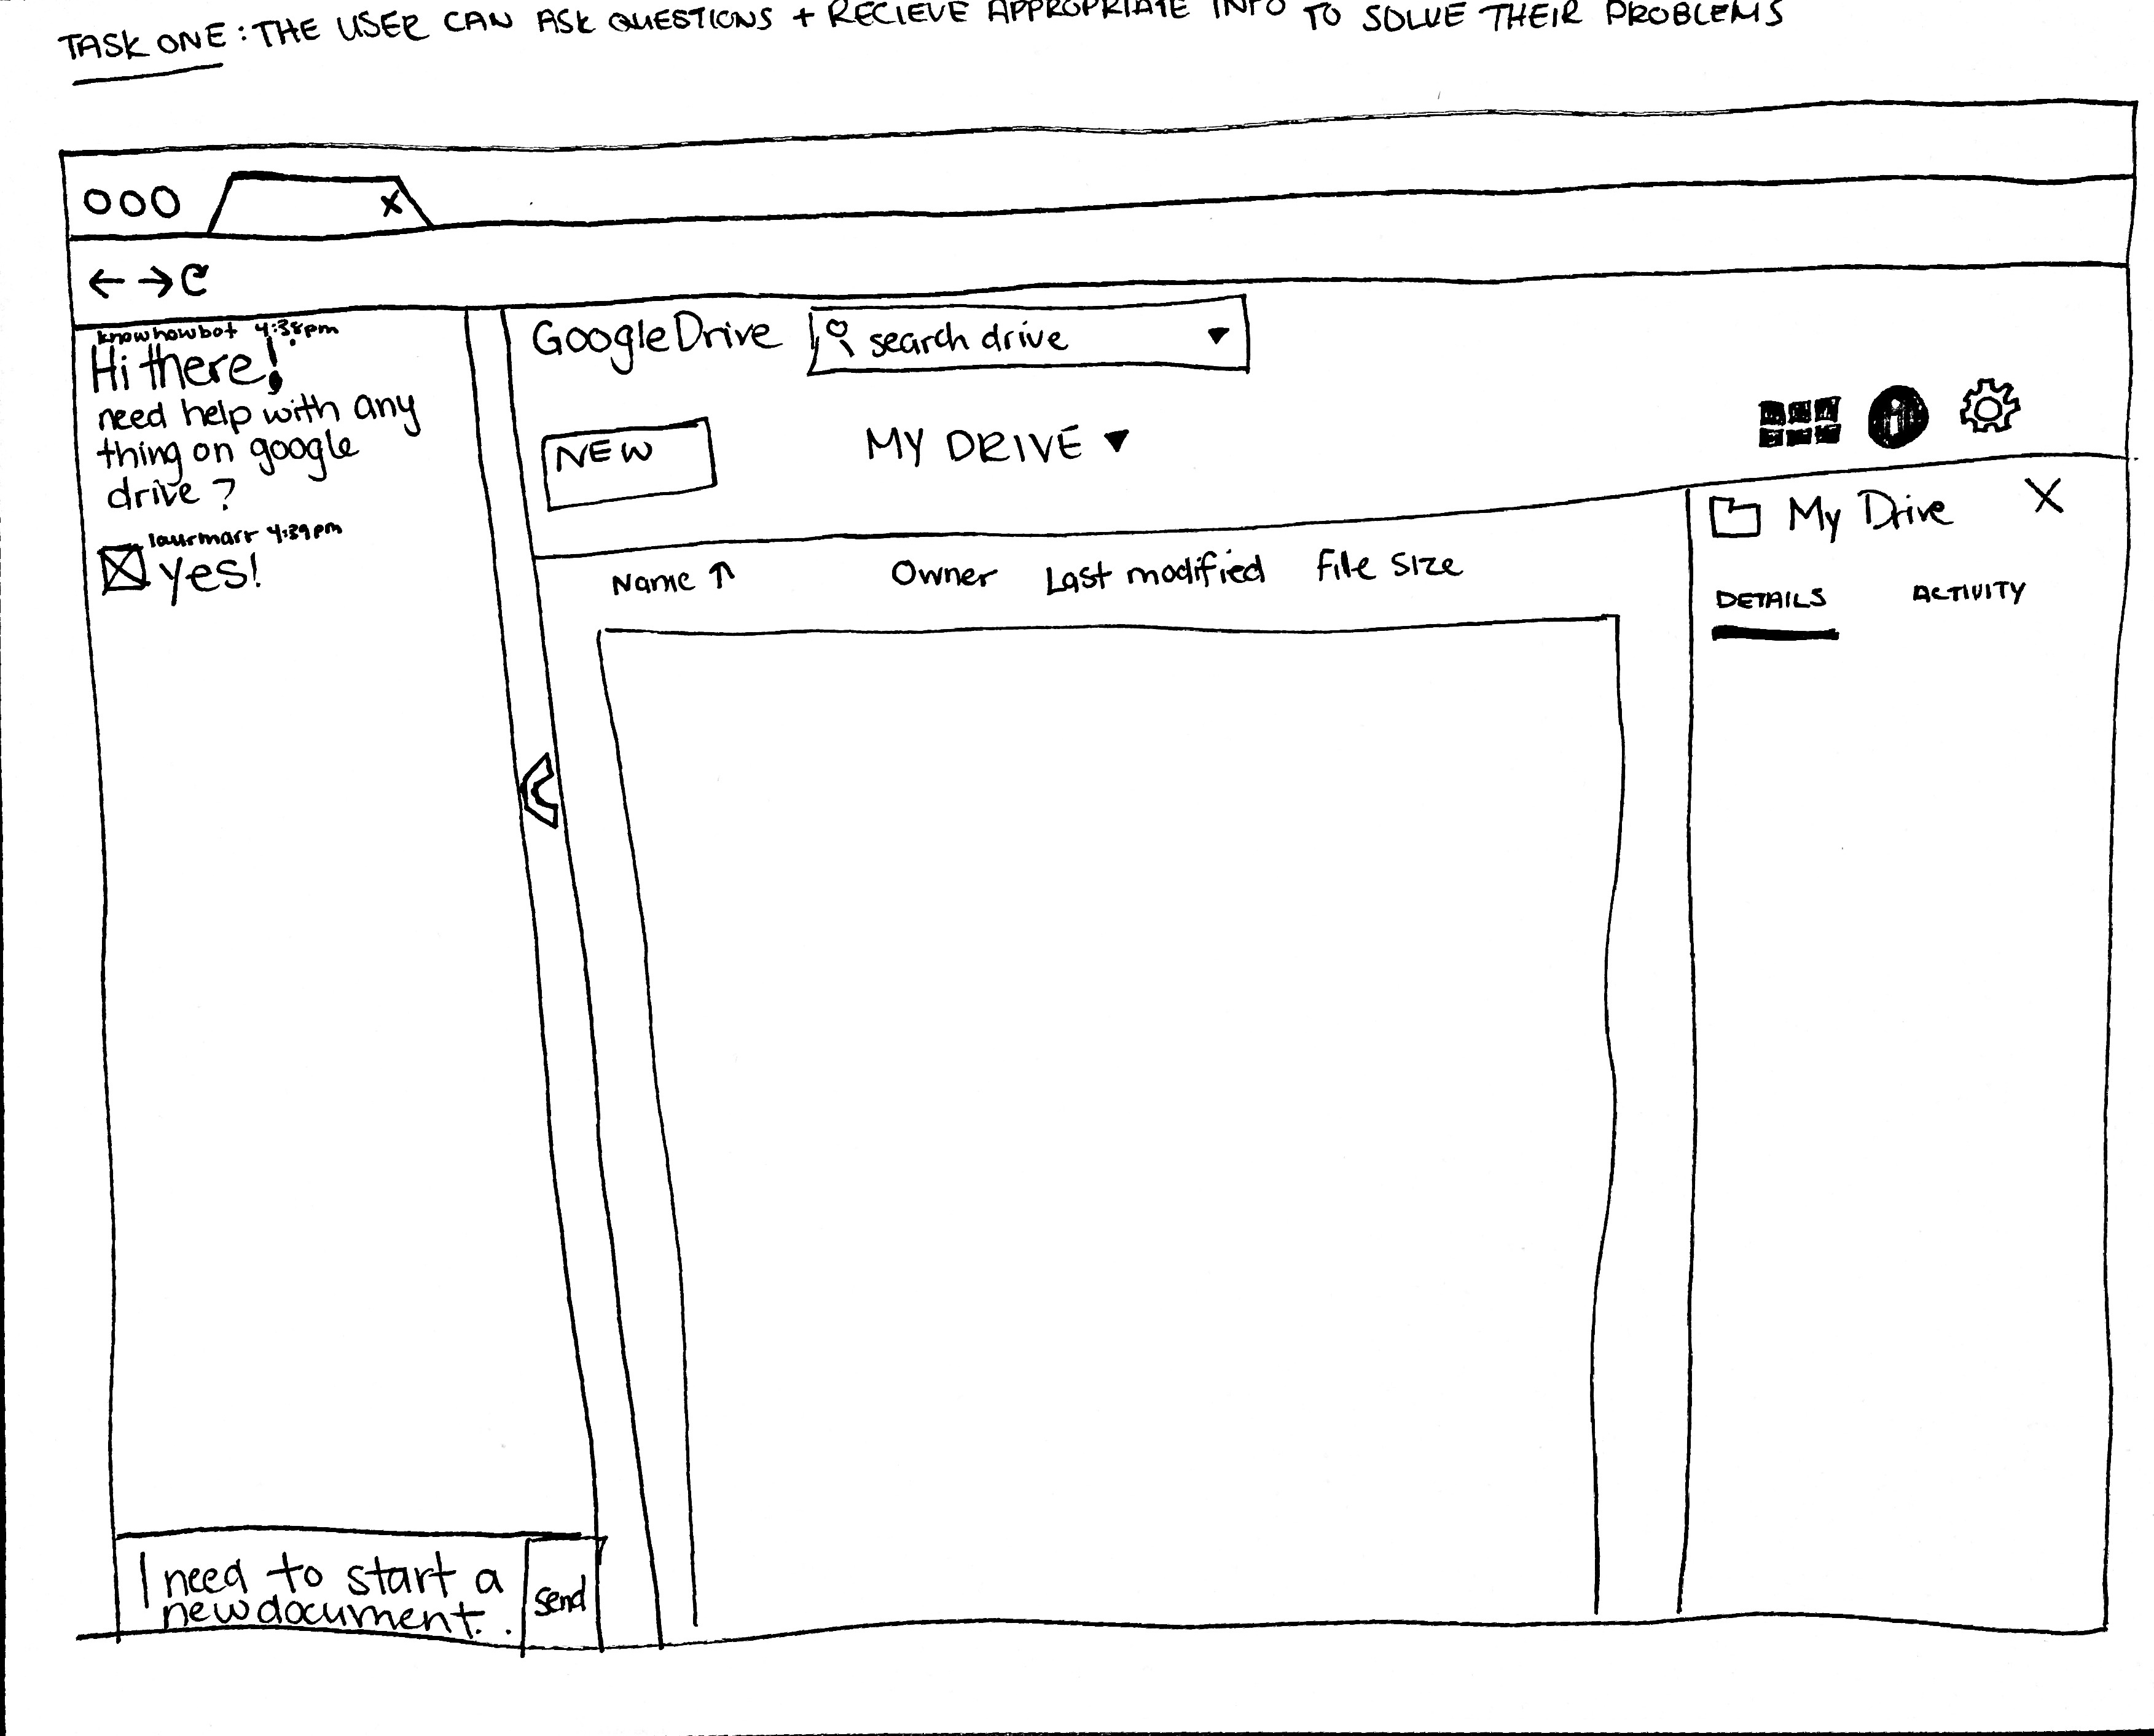 TASK ONE: THE USER CAN ASK QUESTIONS + RECIEVE APPROPRIATE INFO TO SOLVE THEIR PROBLEMS
X
knowhowbot 4:38pm
Hi there!
need help with any
thing on google
drive?
laurmarr 4:39pm
yes!
I need to start a
new document..
send
Google Drive
search drive
NEW
MY DRIVE
i
Name ↑ Owner Last modified File Size
My Drive X
DETAILS ACTIVITY